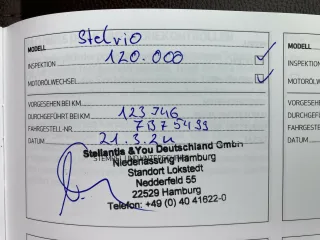 MODELL Stelvio
INSPEKTION 120.000
MOTORÖLWECHSEL
VORGESEHEN BEI KM
DURCHGEFÜHRT BEI KM 123746
FAHRGESTELL-NR. 7B75499
DATUM 21.3.24
Stellantis &You Deutschland GmbH
Niederlassung Hamburg
Standort Lokstedt
Nedderfeld 55
22529 Hamburg
Telefon: +49 (0) 40 41622-0
MODELL
INSPEKTION
MOTORÖLWECHSEL
VORGESEHEN BEI
DURCHGEFÜHRT
FAHRGESTELL-NR
DATUM